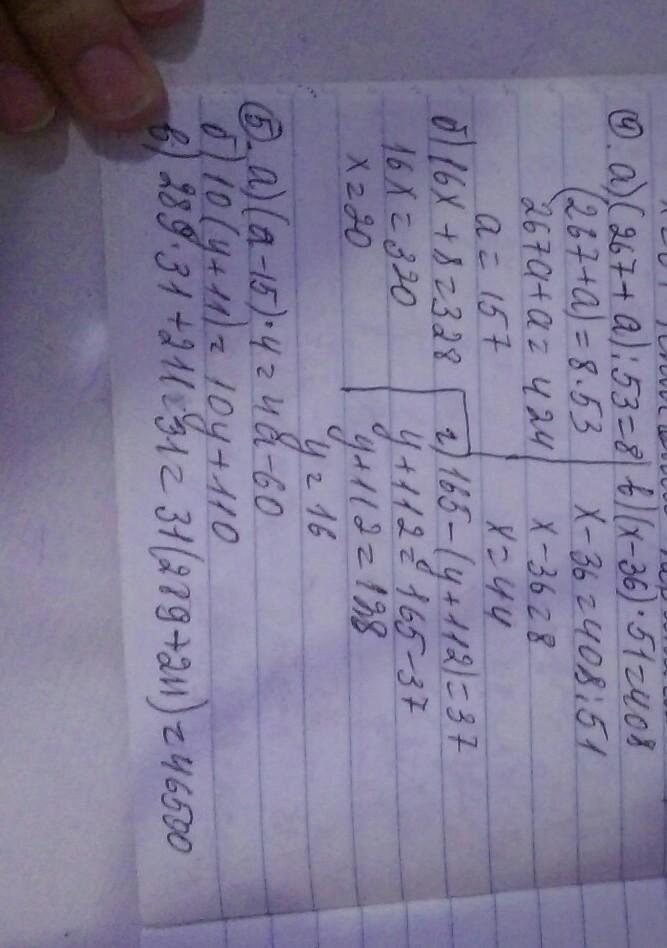 4. а) (267 + а) : 53 = 8
(267 + а) = 8 · 53
267а + а = 424
а = 157
в) (х - 36) · 51 = 408
х - 36 = 408 : 51
х - 36 = 8
х = 44
б) 16х + 8 = 328
16х = 320
х = 20
г) 165 - (у + 112) = 37
у + 112 = 165 - 37
у + 112 = 128
у = 16
5. а) (а - 15) · 4 = 4а - 60
б) 10 (у + 11) = 10у + 110
в) 289 · 31 + 211 · 31 = 31 (289 + 211) = 46500